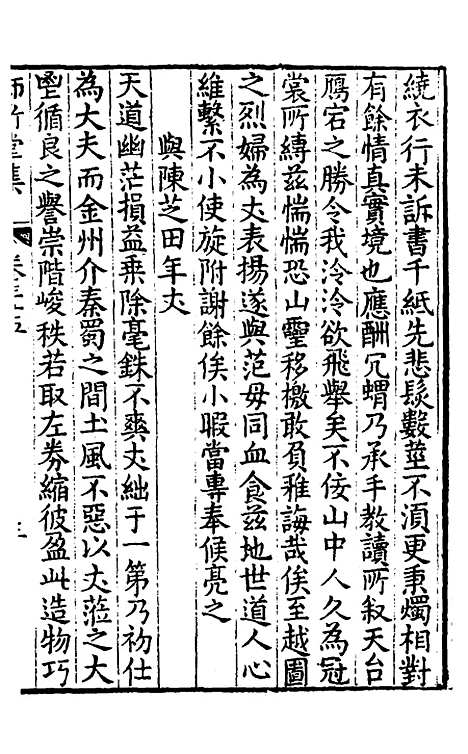 繞衣行未訴書千紙先悲鬚數莖不湏更秉燭相對
有餘情真實境也應酬冗蝟乃承手教讀所叙天台
鴈宕之勝令我泠泠欲飛舉矣不佞山中人久為冠
裳所縛兹惴惴恐山靈移檄敢負雅誨哉俟至越圖
之烈婦為丈表揚遂與范母同血食兹地世道人心
維繫不小使旋附謝餘俟小暇當專奉候亮之
與陳芝田年丈
天道幽茫損益乘除毫銖不爽丈絀于一第乃初仕
為大夫而金州介秦蜀之間土風不惡以丈蒞之大
堊循良之譽崇階峻秩若取左券縮彼盈此造物巧